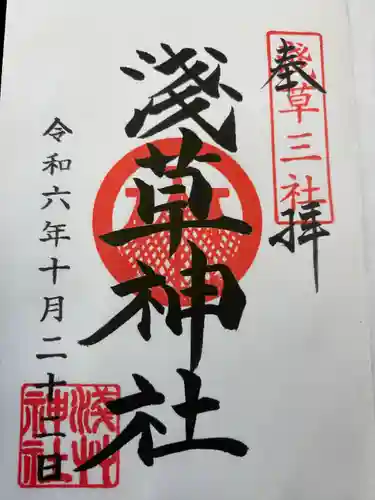 奉拝
淺草三社
淺草神社
令和六年十月二十二日
淺草神社